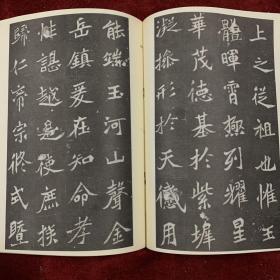 上之從祖也惟王
體暉霄極列耀星
華茂德基於紫墀
凝操形於天感用
能端玉河山聲金
岳鎮爰在知命孝
性諶越是使庶族
歸仁帝宗攸式暨